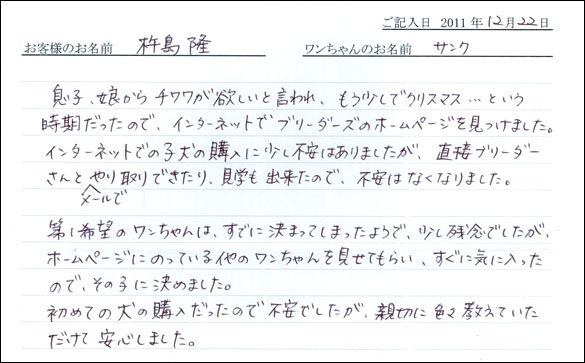 ご記入日 2011年12月22日
お客様のお名前 杵島 隆 ワンちゃんのお名前 サンク
息子、娘から チワワが欲しいと言われ、もう少しでクリスマス…という
時期だったので、インターネットで ブリーダーズのホームページを見つけました。
インターネットでの子犬の購入に少し不安はありましたが、直接ブリーダー
さんと やり取りできたり、見学も 出来たので、不安はなくなりました。
メールで
第1希望のワンちゃんは、すでに 決まってしまったようで、少し残念でしたが、
ホームページに のっている他のワンちゃんを見せてもらい、すぐに気に入った
ので、その子に 決めました。
初めての犬の購入だったので不安でしたが、親切に色々教えていた
だけて 安心しました。